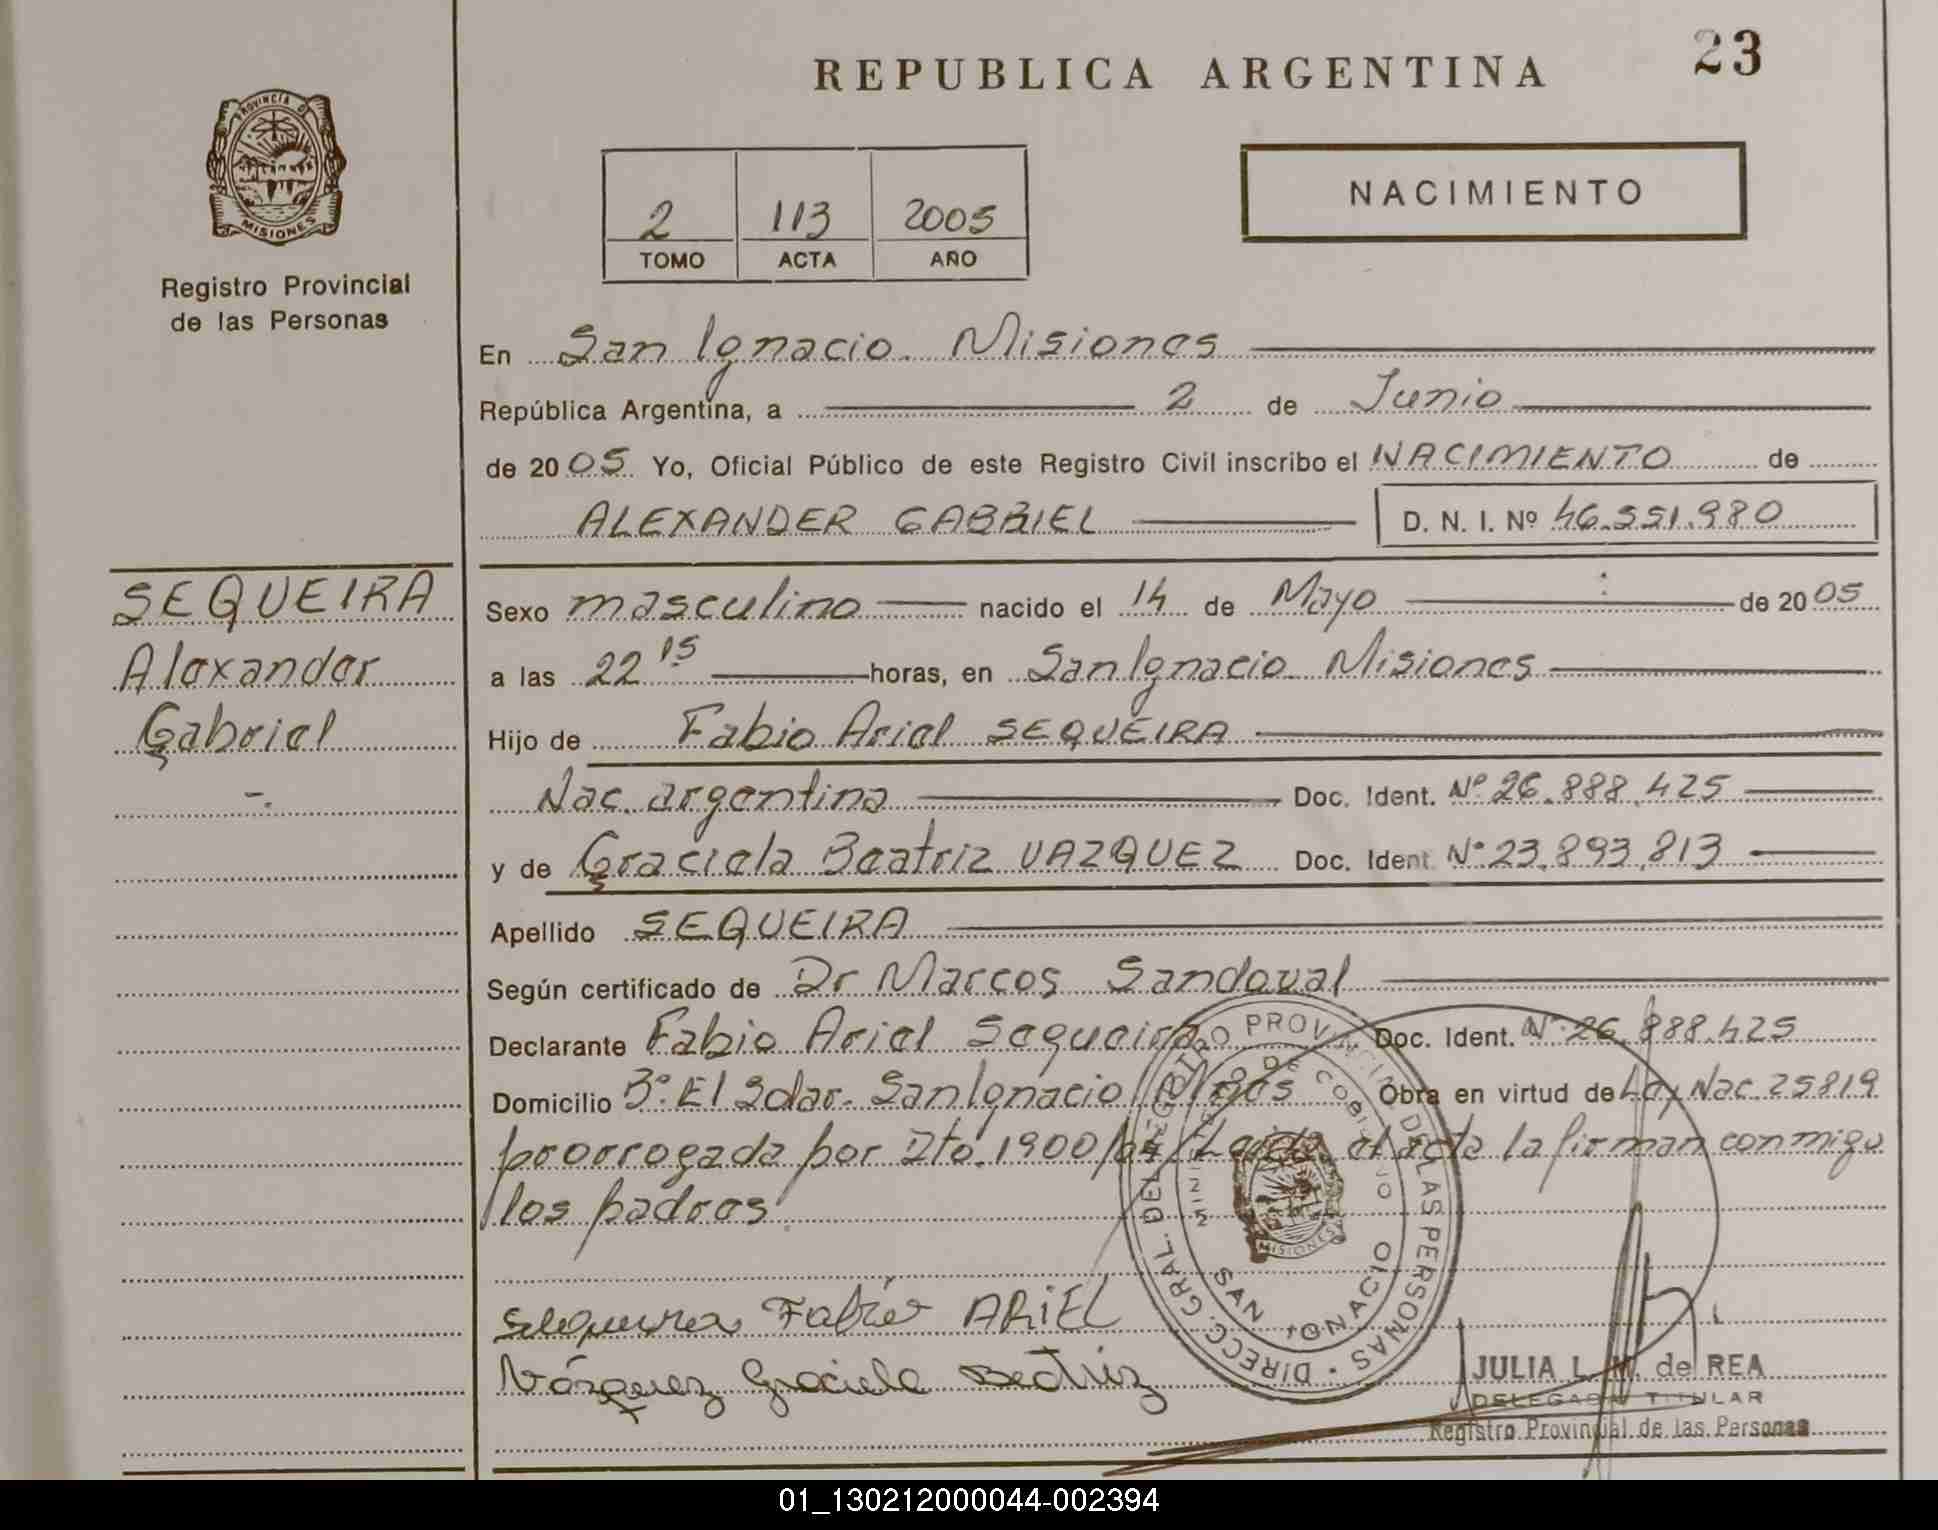 23
REPUBLICA ARGENTINA
PROVINCIA DE
MISIONES
Registro Provincial
de las Personas
NACIMIENTO
2 113 2005
TOMO ACTA AÑO
En San Ignacio. Misiones
República Argentina, a 2 de Junio
de 2005 Yo, Oficial Público de este Registro Civil inscribo el NACIMIENTO de
ALEXANDER GABRIEL D. N. I. Nº 46.551.980
SEQUEIRA
Alexander
Gabriel
Sexo masculino nacido el 14 de Mayo de 2005
a las 22 15 horas, en San Ignacio Misiones
Hijo de Fabio Ariel SEQUEIRA
Nac. argentina Doc. Ident. Nº 26.888.425
y de Graciela Beatriz VAZQUEZ Doc. Ident. Nº 23.893.813
Apellido SEQUEIRA
Según certificado de Dr Marcos Sandoval
Declarante Fabio Ariel Sequeira Doc. Ident. Nº 26.888.425
Domicilio Bº. El Solar. San Ignacio Mnes Obra en virtud de Ley Nac. 25819
prorrogada por Dto. 1900/04/ Leida el acta la firman conmigo
los padres.
DIRECC. GRAL. DEL REGISTRO PROVINCIAL DE LAS PERSONAS
SAN IGNACIO
MISIONES
Sequeira Fabio ARIEL
Vázquez Graciela Beatriz
JULIA L. M. de REA
DELEGADA TITULAR
Registro Provincial de las Personas
01_130212000044-002394